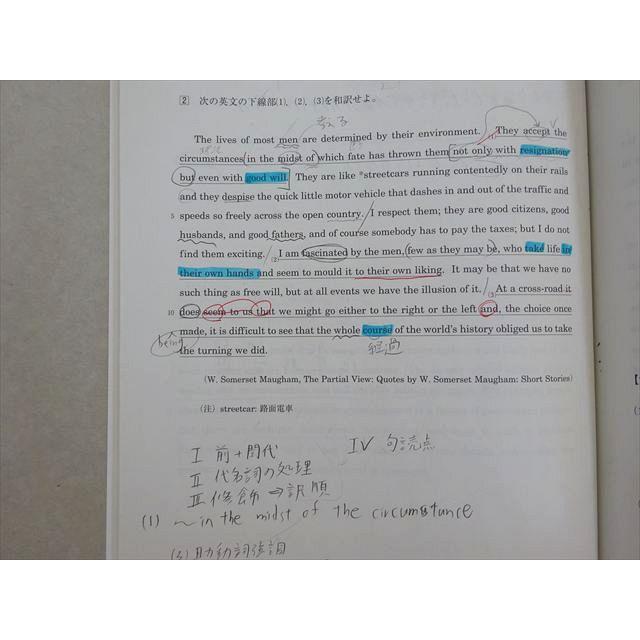 2 次の英文の下線部(1), (2), (3)を和訳せよ。
The lives of most men are determined by their environment. (1)They accept the
circumstances in the midst of which fate has thrown them not only with resignation
but even with good will. They are like *streetcars running contentedly on their rails
and they despise the quick little motor vehicle that dashes in and out of the traffic and
5 speeds so freely across the open country. I respect them; they are good citizens, good
husbands, and good fathers, and of course somebody has to pay the taxes; but I do not
find them exciting. (2)I am fascinated by the men, few as they may be, who take life in
their own hands and seem to mould it to their own liking. It may be that we have no
such thing as free will, but at all events we have the illusion of it. (3)At a cross-road it
10 does seem to us that we might go either to the right or the left and, the choice once
being
made, it is difficult to see that the whole course of the world's history obliged us to take
経過
the turning we did.
(W. Somerset Maugham, The Partial View: Quotes by W. Somerset Maugham: Short Stories)
(注) streetcar: 路面電車
I 前+関代
IV 句読点
II 代名詞の処理
III 修飾⇒訳順
(1) ~in the midst of the circumstance
(3) 助動詞強調